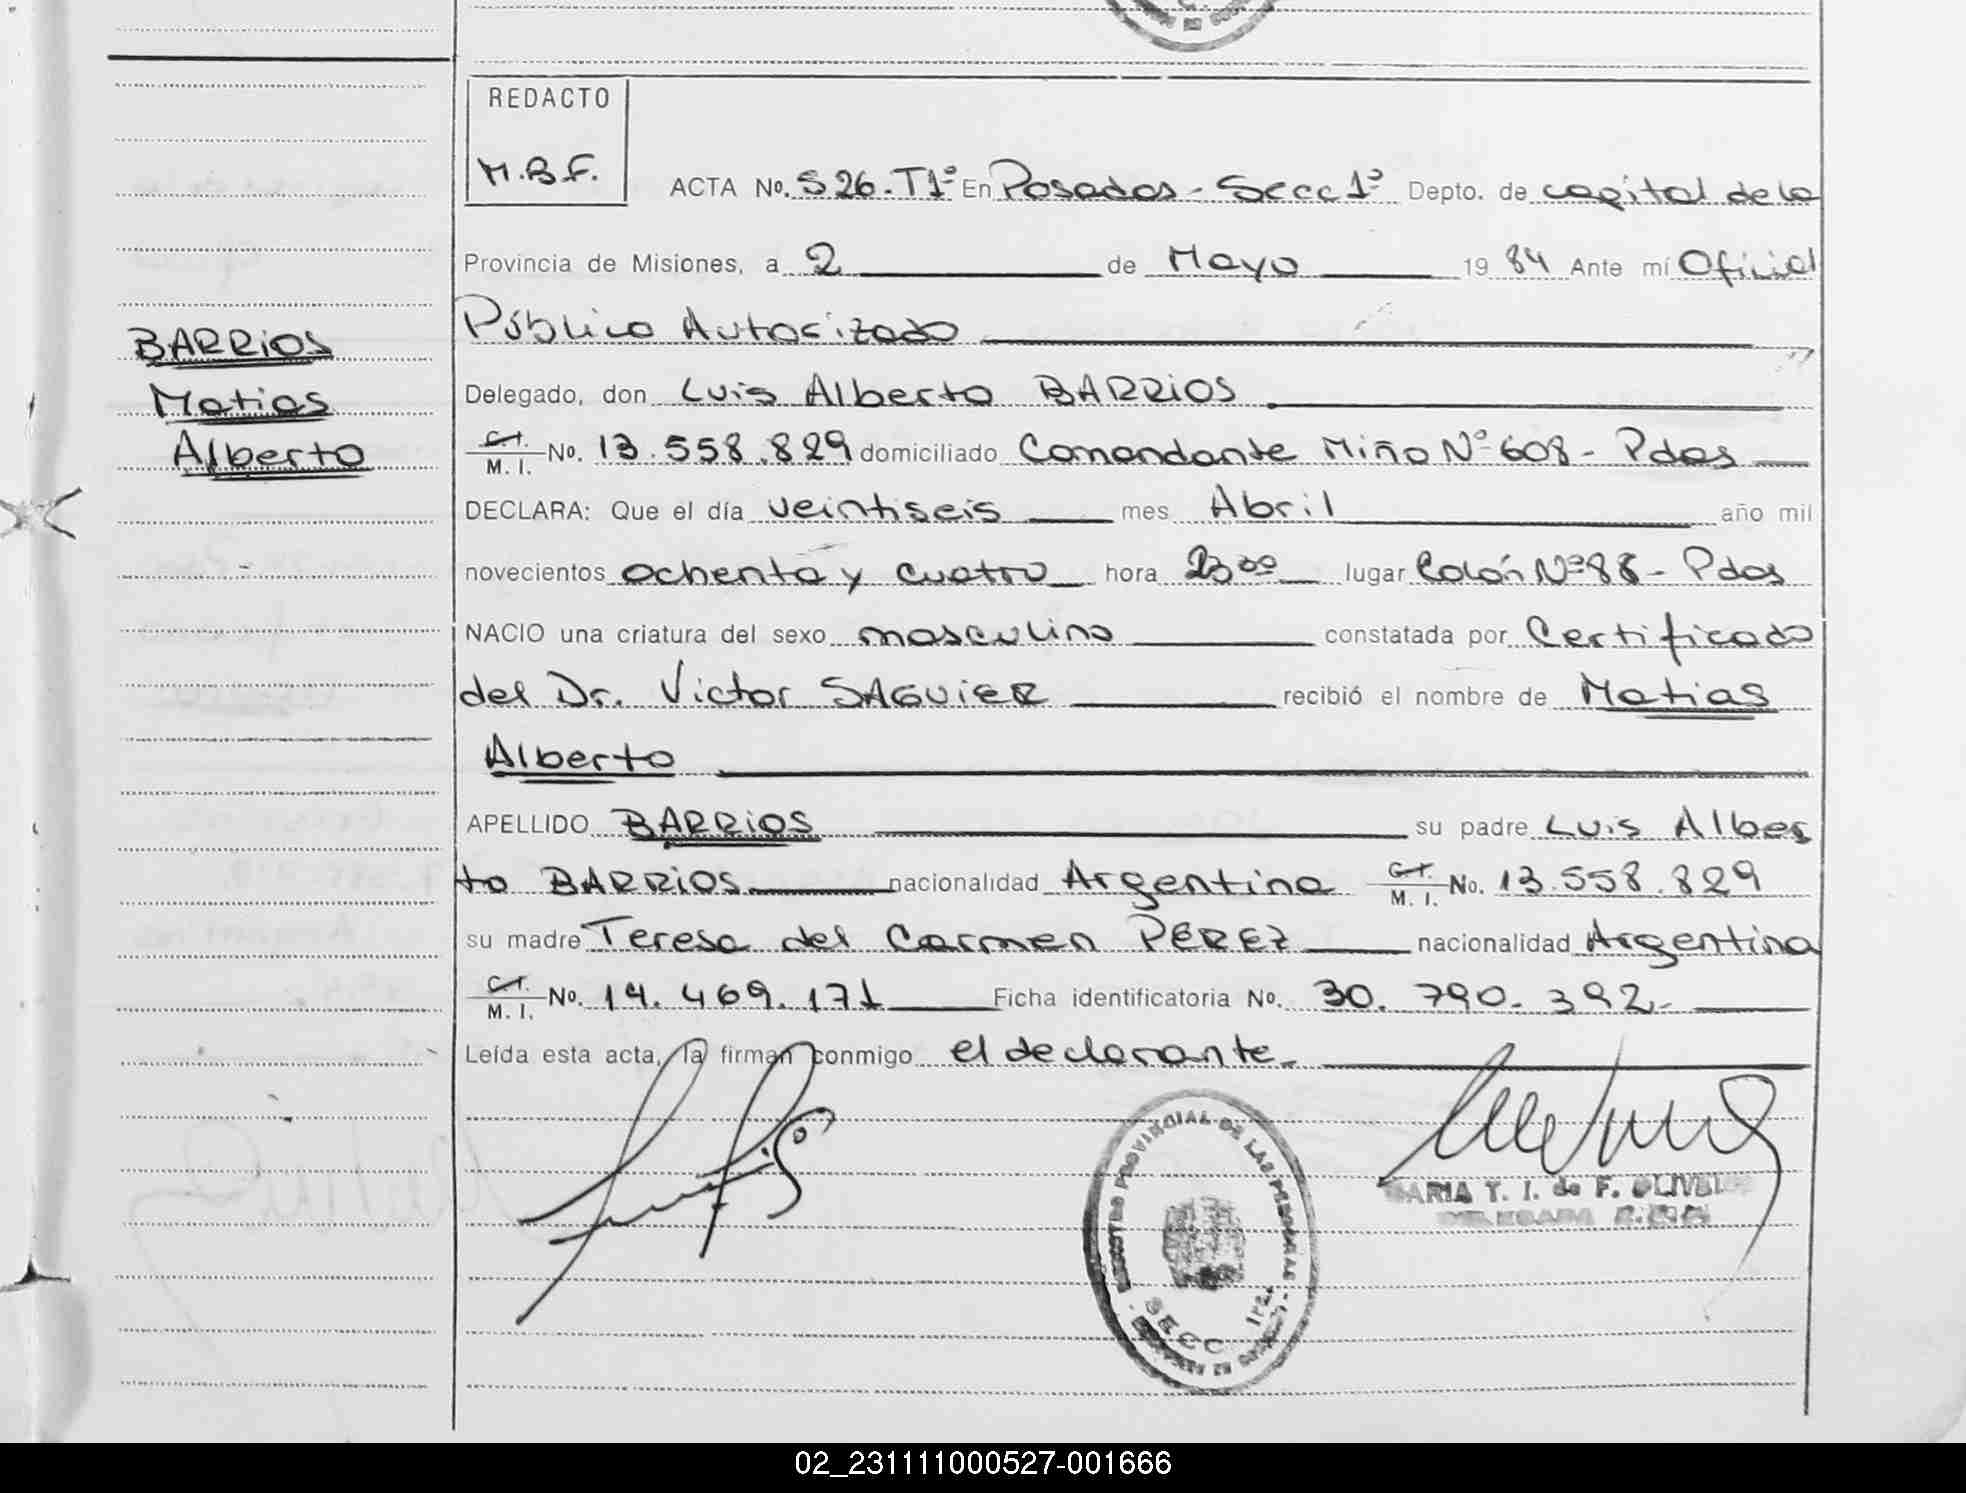 REDACTO
M.B.F.
ACTA No. 526.T1º En Posadas - Secc 1º Depto. de capital de la
Provincia de Misiones, a 2 de Mayo 19 84 Ante mí Oficial
Público Autorizado
BARRiOS
Matias
Alberto
Delegado, don Luis Alberto BARRiOS
C.I. M. I. No. 13.558.829 domiciliado Comandante Miño Nº 608 - Pdas
DECLARA: Que el día veintiseis mes Abril año mil
novecientos ochenta y cuatro hora 23 30 lugar Colón Nº 88 - Pdas
NACIO una criatura del sexo masculino constatada por Certificado
del Dr. Victor SAGUiER recibió el nombre de Matias
Alberto
APELLIDO BARRiOS su padre Luis Alber
to BARRiOS nacionalidad Argentina C.I. M. I. No. 13.558.829
su madre Teresa del Carmen PEREZ nacionalidad Argentina
C.I. M. I. No. 14.469.171 Ficha identificatoria No. 30.790.392.-
Leída esta acta, la firman conmigo el declarante.-
PROVINCIAL DE LAS PERSONAS
SECC 1ra.
MARIA T. I. de F. OLIVEIRA
DELEGADA
02_231111000527-001666